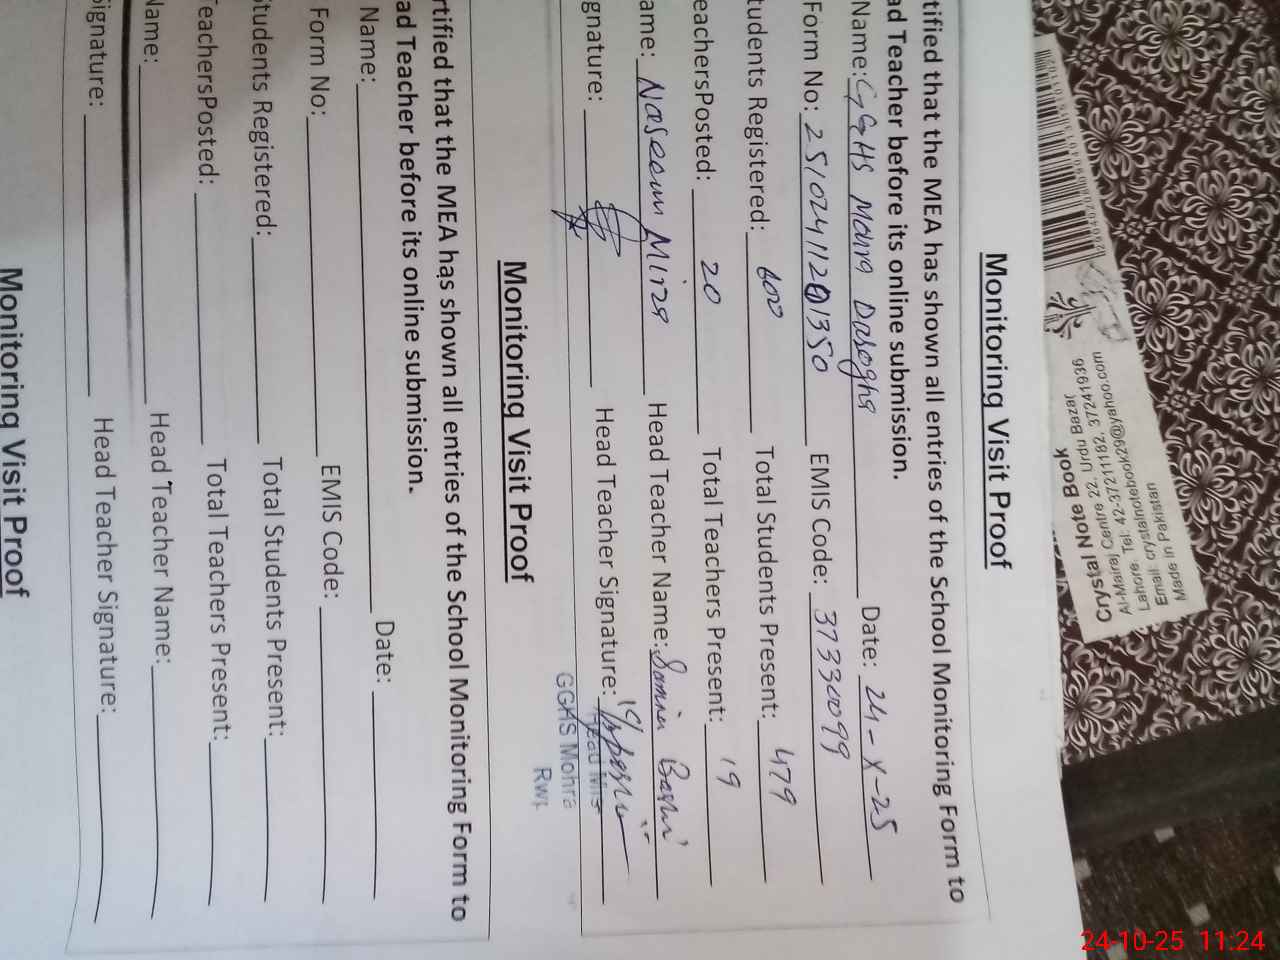 Monitoring Visit Proof
tified that the MEA has shown all entries of the School Monitoring Form to
ad Teacher before its online submission.
Name: GGHS Mohra Darogha Date: 24-X-25
Form No: 25102411201350 EMIS Code: 37330099
tudents Registered: 600 Total Students Present: 479
eachersPosted: 20 Total Teachers Present: 19
ame: Naseem Mirza Head Teacher Name: Samina Bashir
gnature: Head Teacher Signature:
Head Mis
GGHS Mohra
Rwp
Monitoring Visit Proof
rtified that the MEA has shown all entries of the School Monitoring Form to
ad Teacher before its online submission.
Name: Date:
Form No: EMIS Code:
Students Registered: Total Students Present:
TeachersPosted: Total Teachers Present:
Name: Head Teacher Name:
Signature: Head Teacher Signature:
Monitoring Visit Proof
Crystal Note Book
Al-Mairaj Centre 22, Urdu Bazar
Lahore. Tel: 42-37211182, 37241936
Email: crystalnotebook29@yahoo.com
Made in Pakistan
24-10-25 11:24